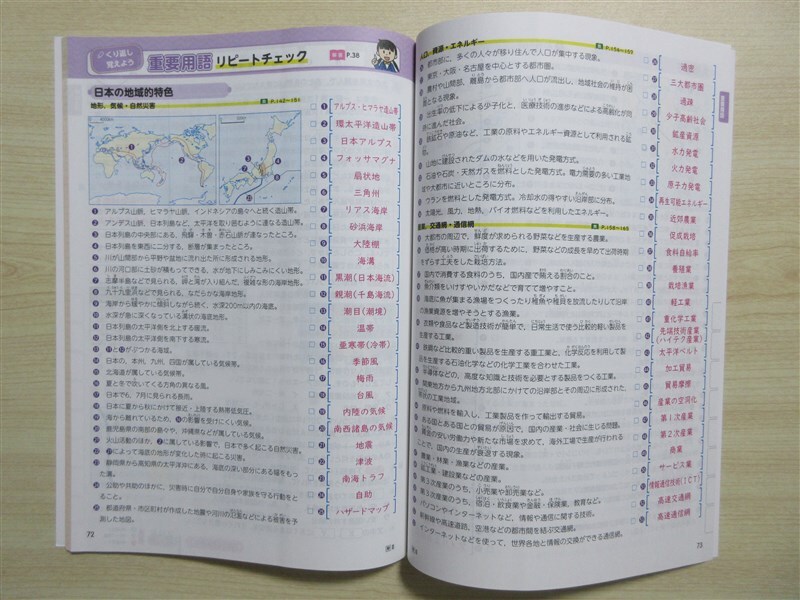 くり返し
覚えよう
重要用語 リピートチェック
P.38
日本の地域的特色
地形、気候・自然災害
P.142~151
❶ アルプス山脈、ヒマラヤ山脈、インドネシアの島々へと続く造山帯。
❷ アンデス山脈、日本列島など、太平洋を取り囲むように連なる造山帯。
❸ 日本列島の中央部にある、飛驒・木曽・赤石山脈が連なったところ。
❹ 日本列島を東西に二分する、断層が集まったところ。
❺ 川が山間部から平野や盆地に流れ出た所に形成される地形。
❻ 川の河口部に土砂が積もってできる、水が地下にしみこみにくい地形。
❼ 志摩半島などで見られる、岬と湾が入り組んだ、複雑な形の海岸地形。
❽ 九十九里浜などで見られる、なだらかな海岸地形。
❾ 海岸から緩やかに傾斜しながら続く、水深200m以内の海底。
❿ 水深が急に深くなっている溝状の海底地形。
⓫ 日本列島の太平洋側を北上する暖流。
⓬ 日本列島の太平洋側を南下する寒流。
⓭ ⓫と⓬がぶつかる海域。
⓮ 日本の、本州、九州、四国が属している気候帯。
⓯ 北海道が属している気候帯。
⓰ 夏と冬で吹いてくる方角の異なる風。
⓱ 日本でも、7月に見られる長雨。
⓲ 日本に夏から秋にかけて接近・上陸する熱帯低気圧。
⓳ 海から離れているため、⓰の影響を受けにくい気候。
⓴ 鹿児島県の南部の島々や、沖縄県などが属している気候。
㉑ 火山活動のほか、❷に属している影響で、日本で多く起こる自然災害。
㉒ ㉑によって海底の地形が変化した際に起こる災害。
㉓ 静岡県から高知県の太平洋沖にある、海底の深い部分にある幅をもった溝。
㉔ 公助や共助のほかに、災害時に自分で自分自身や家族を守る行動をとること。
㉕ 都道府県・市区町村が作成した地震や河川の氾濫などによる被害を予測した地図。
アルプス・ヒマラヤ造山帯
環太平洋造山帯
日本アルプス
フォッサマグナ
扇状地
三角州
リアス海岸
砂浜海岸
大陸棚
海溝
黒潮(日本海流)
親潮(千島海流)
潮目(潮境)
温帯
亜寒帯(冷帯)
季節風
梅雨
台風
内陸の気候
南西諸島の気候
地震
津波
南海トラフ
自助
ハザードマップ
72
人口、資源・エネルギー
都市部に、多くの人々が移り住んで人口が集中する現象。
東京・大阪・名古屋を中心とする都市圏。
農村や山間部、離島から都市部へ人口が流出し、地域社会の維持が困難となる現象。
出生率の低下による少子化と、医療技術の進歩などによる高齢化が同時に進んだ社会。
鉄鉱石や原油など、工業の原料やエネルギー資源として利用される鉱物。
山地に建設されたダムの水などを用いた発電方式。
石油や石炭・天然ガスを燃料とした発電方式。電力需要の多い工業地域や大都市に近いところに分布。
ウランを燃料とした発電方式。冷却水の得やすい沿岸部に分布。
太陽光、風力、地熱、バイオ燃料などを利用したエネルギー。
産業、交通網・通信網
大都市の周辺で、鮮度が求められる野菜などを生産する農業。
価格が高い時期に出荷するために、野菜などの成長を早めて出荷時期をずらす工夫をした栽培方法。
国内で消費する食料のうち、国内産で賄える割合のこと。
魚介類をいけすやいかだなどで育てて増やすこと。
海底に魚が集まる漁場をつくったり稚魚や稚貝を放流したりして沿岸の漁業資源を増やそうとする漁業。
衣類や食品など製造技術が簡単で、日常生活で使う比較的軽い製品を生産する工業。
鉄鋼など比較的重い製品を生産する重工業と、化学反応を利用して製品を生産する石油化学などの化学工業を合わせた工業。
半導体などの、高度な知識と技術を必要とする製品をつくる工業。
関東地方から九州地方北部にかけての沿岸部とその周辺に形成された、帯状の工業地域。
原料や燃料を輸入し、工業製品を作って輸出する貿易。
ある国とある国との貿易が原因で、国内の産業・社会に生じる問題。
賃金の安い労働力や新たな市場を求めて、海外工場で生産が行われることで、国内の生産が衰退する現象。
農業・林業・漁業などの産業。
鉱工業・建設業などの産業。
第3次産業のうち、小売業や卸売業など。
第3次産業のうち、宿泊・飲食業や金融・保険業、教育など。
パソコンやインターネットなど、情報や通信に関する技術。
新幹線や高速道路、空港などの都市間を結ぶ交通網。
インターネットなどを使って、世界各地と情報の交換ができる通信網。
過密
三大都市圏
過疎
少子高齢社会
鉱産資源
水力発電
火力発電
原子力発電
再生可能エネルギー
近郊農業
促成栽培
食料自給率
養殖業
栽培漁業
軽工業
重化学工業
先端技術産業
(ハイテク産業)
太平洋ベルト
加工貿易
貿易摩擦
産業の空洞化
第1次産業
第2次産業
商業
サービス業
情報通信技術(ICT)
高速交通網
高速通信網
73